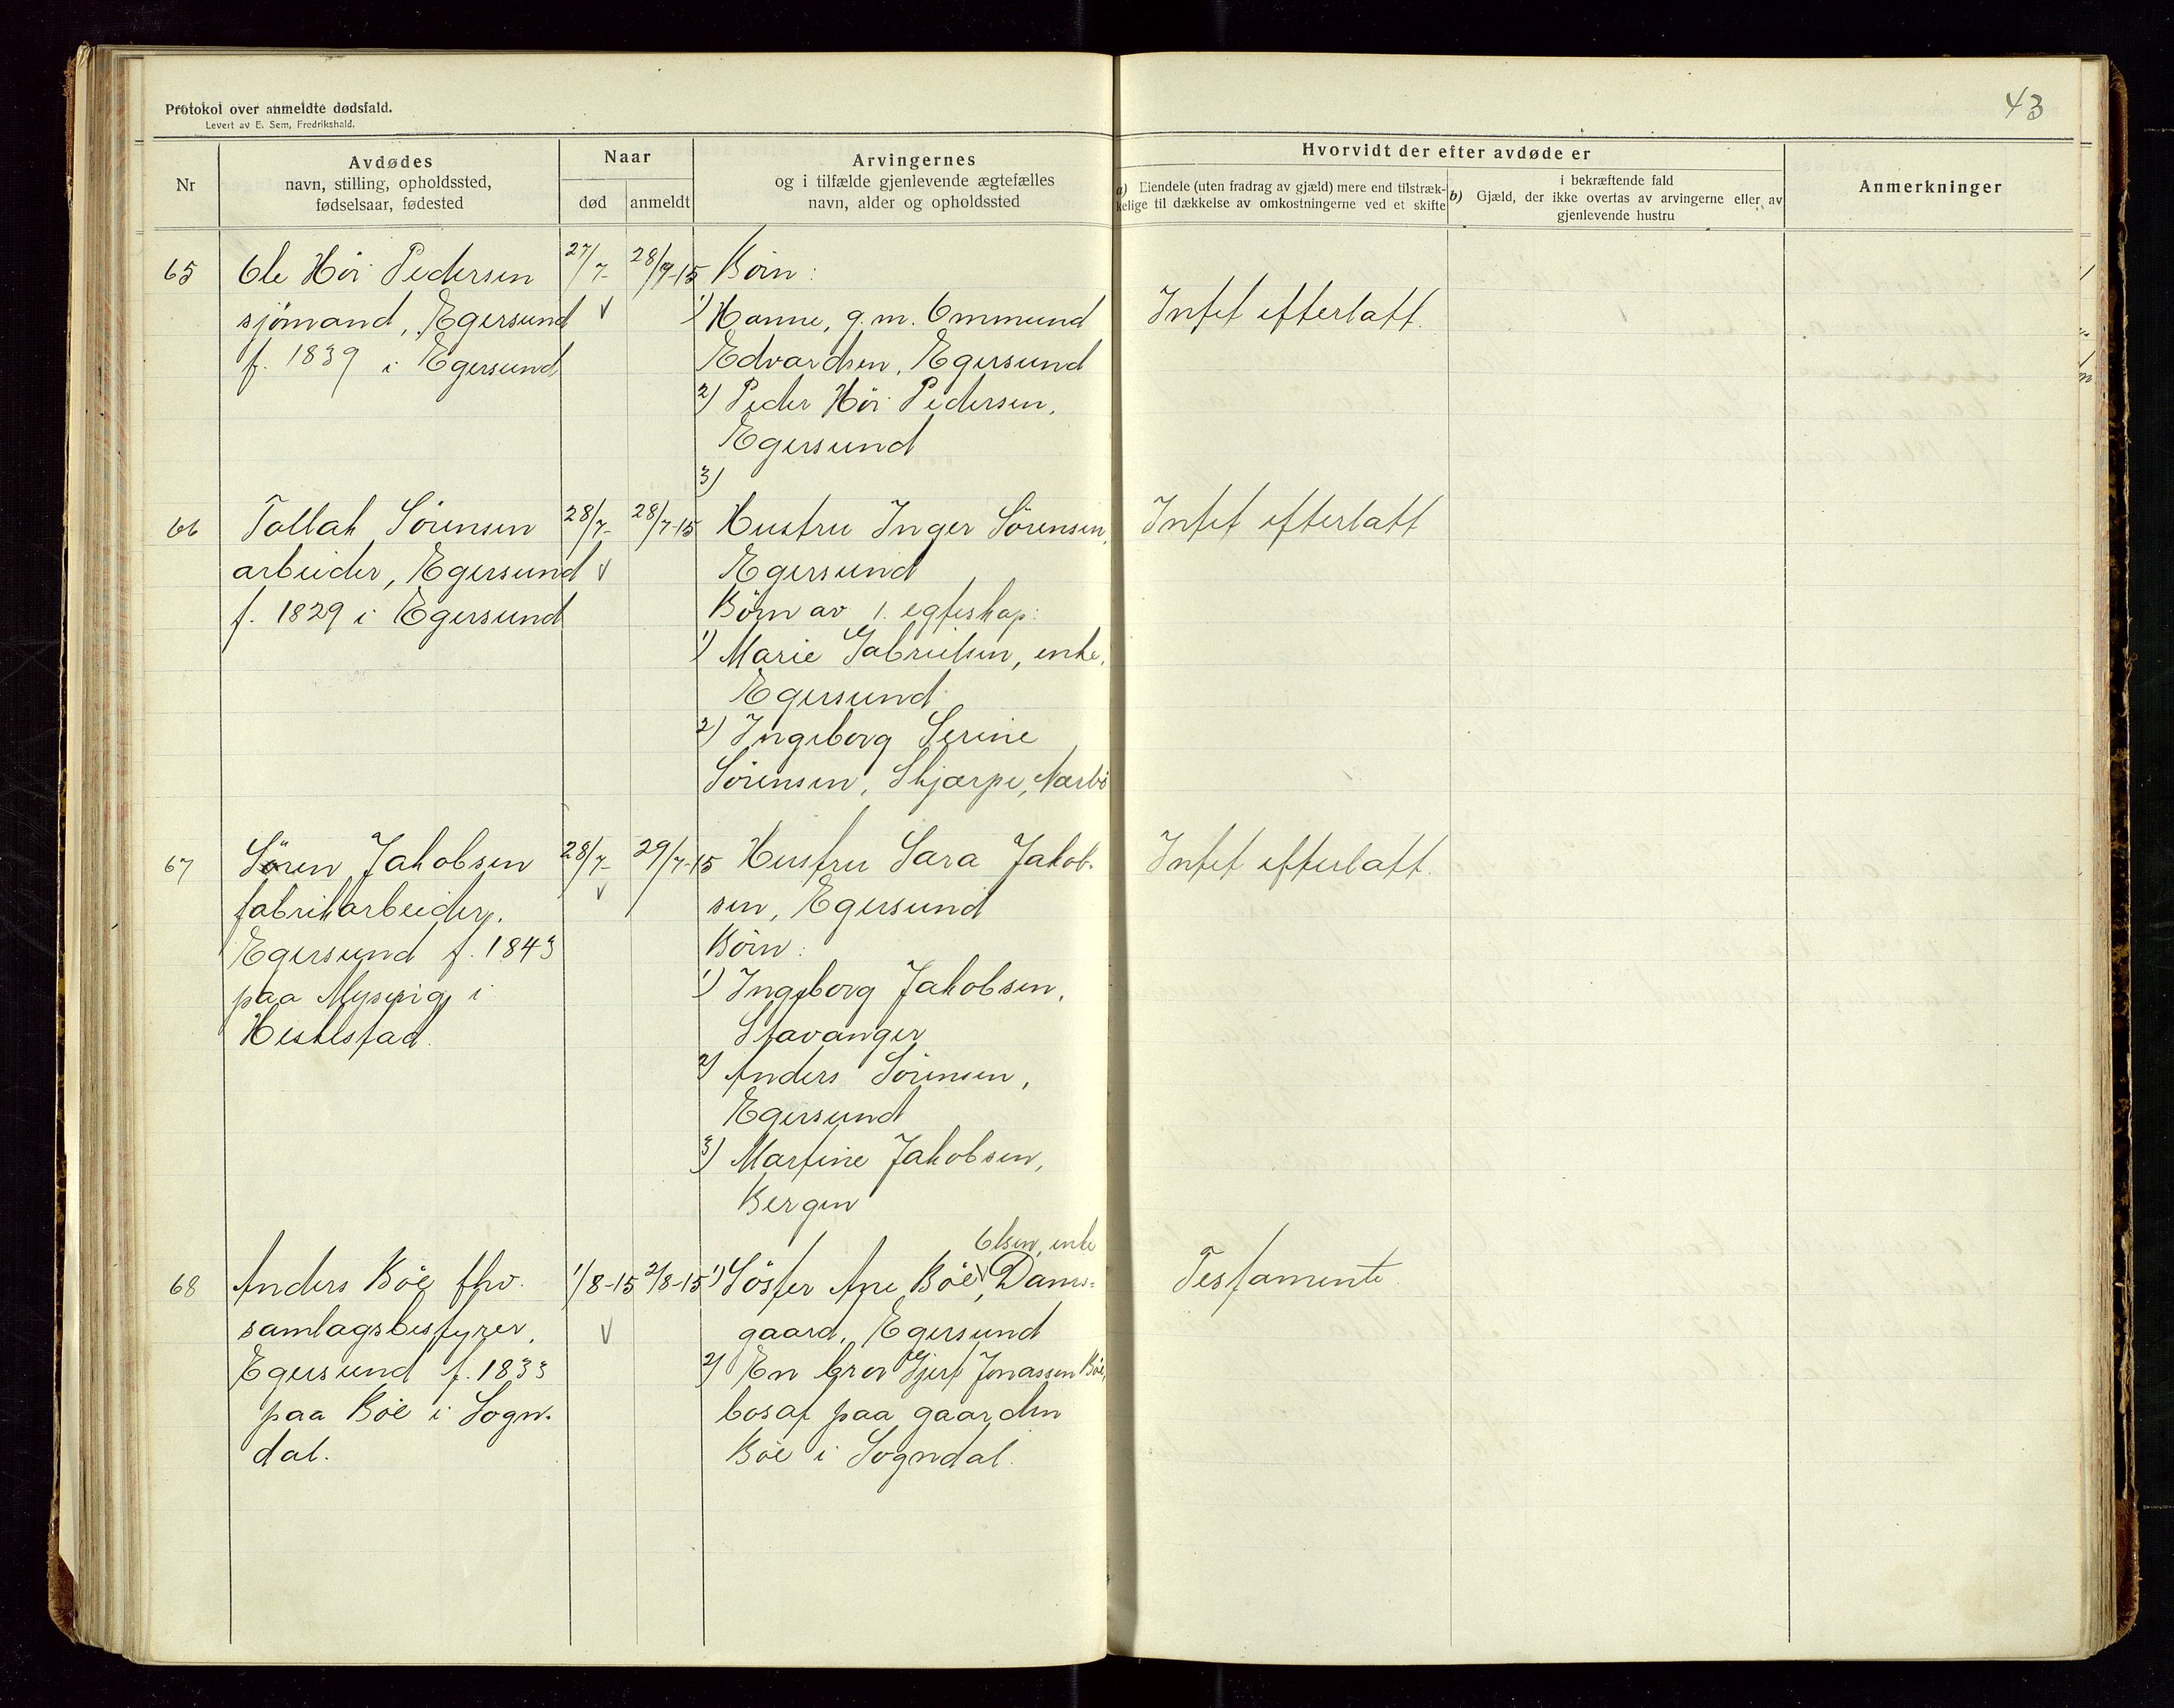 Protokol over anmeldte dødsfald.
Levert av E. Sem, Fredrikshald.
43
Nr
Avdødes
navn, stilling, opholdssted,
fødselsaar, fødested
Naar
død
anmeldt
Arvingernes
og i tilfælde gjenlevende ægtefælles
navn, alder og opholdssted
Hvorvidt der efter avdøde er
a) Eiendele (uten fradrag av gjæld) mere end tilstræk-
kelige til dækkelse av omkostningerne ved et skifte
i bekræftende fald
b) Gjæld, der ikke overtas av arvingerne eller av
gjenlevende hustru
Anmerkninger
65
Ole Höi Pedersen
sjömand, Egersund
f. 1839 i Egersund
27/7-
28/9-15
Börn:
1) Hanne, g.m. Ommund
Edvardsen, Egersund
2) Peder Höi Pedersen,
Egersund
3)
Intet efterlatt.
66
Tollak Sörensen
arbeider, Egersund
f. 1829 i Egersund
28/7-
28/7-15
Hustru Inger Sörensen,
Egersund
Börn av 1. egteskap:
1) Marie Gabrielsen, enke,
Egersund
2) Ingeborg Serine
Sörensen, Skjærpe, Nærbö
Intet efterlatt
67
Sören Jakobsen
fabrikarbeider,
Egersund f. 1843
paa i
Heskestad.
28/7-
29/7-15
Hustru Sara Jakob-
sen, Egersund
Börn:
1) Ingeborg Jakobsen,
Stavanger
2) Anders Sörensen,
Egersund
3) Martine Jakobsen,
Bergen
Intet efterlatt.
68
Anders Böe fhv.
samlagsbestyrer,
Egersund f. 1833
paa Böe i Sogn-
dal.
1/8-15
2/8-15
Olsen, enke
1) Söster Ane Böe, Dams-
gaard, Egersund
2) En bror Gjert Jonassen Böe,
bosat paa gaarden
Böe i Sogndal.
Testamente.